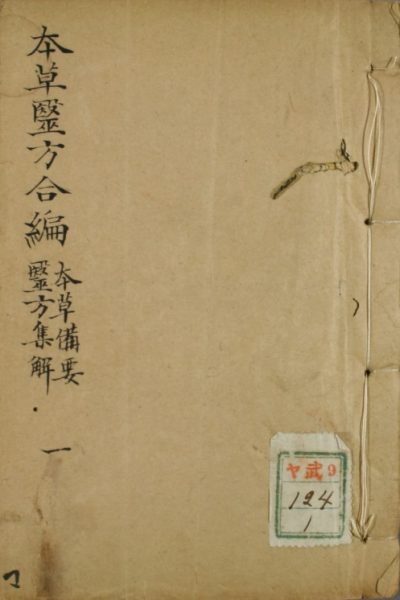 本草毉方合編
本草備要
毉方集解
一
ヤ 武 9
124
1